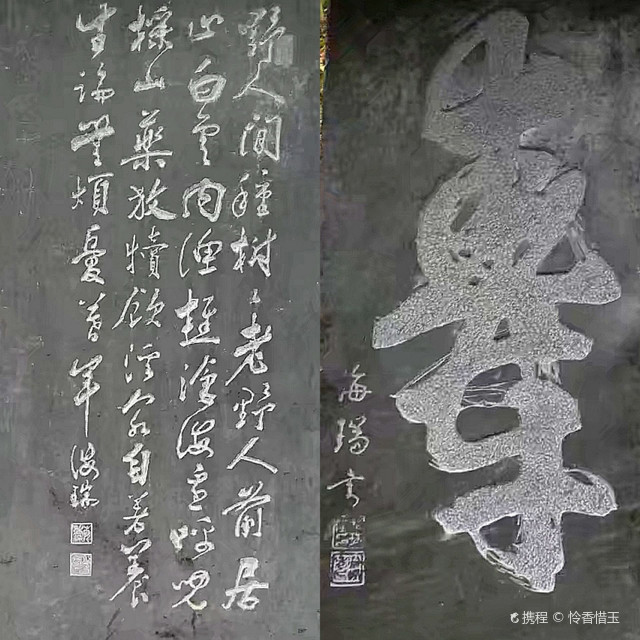 野人閒種樹〻老野人前居
止白雲内漁樵滄海邊呼兒
採山藥放犢飲溪泉自著養
生論無煩憂暮年 海瑞
壽
海瑞書
携程 © 怜香惜玉